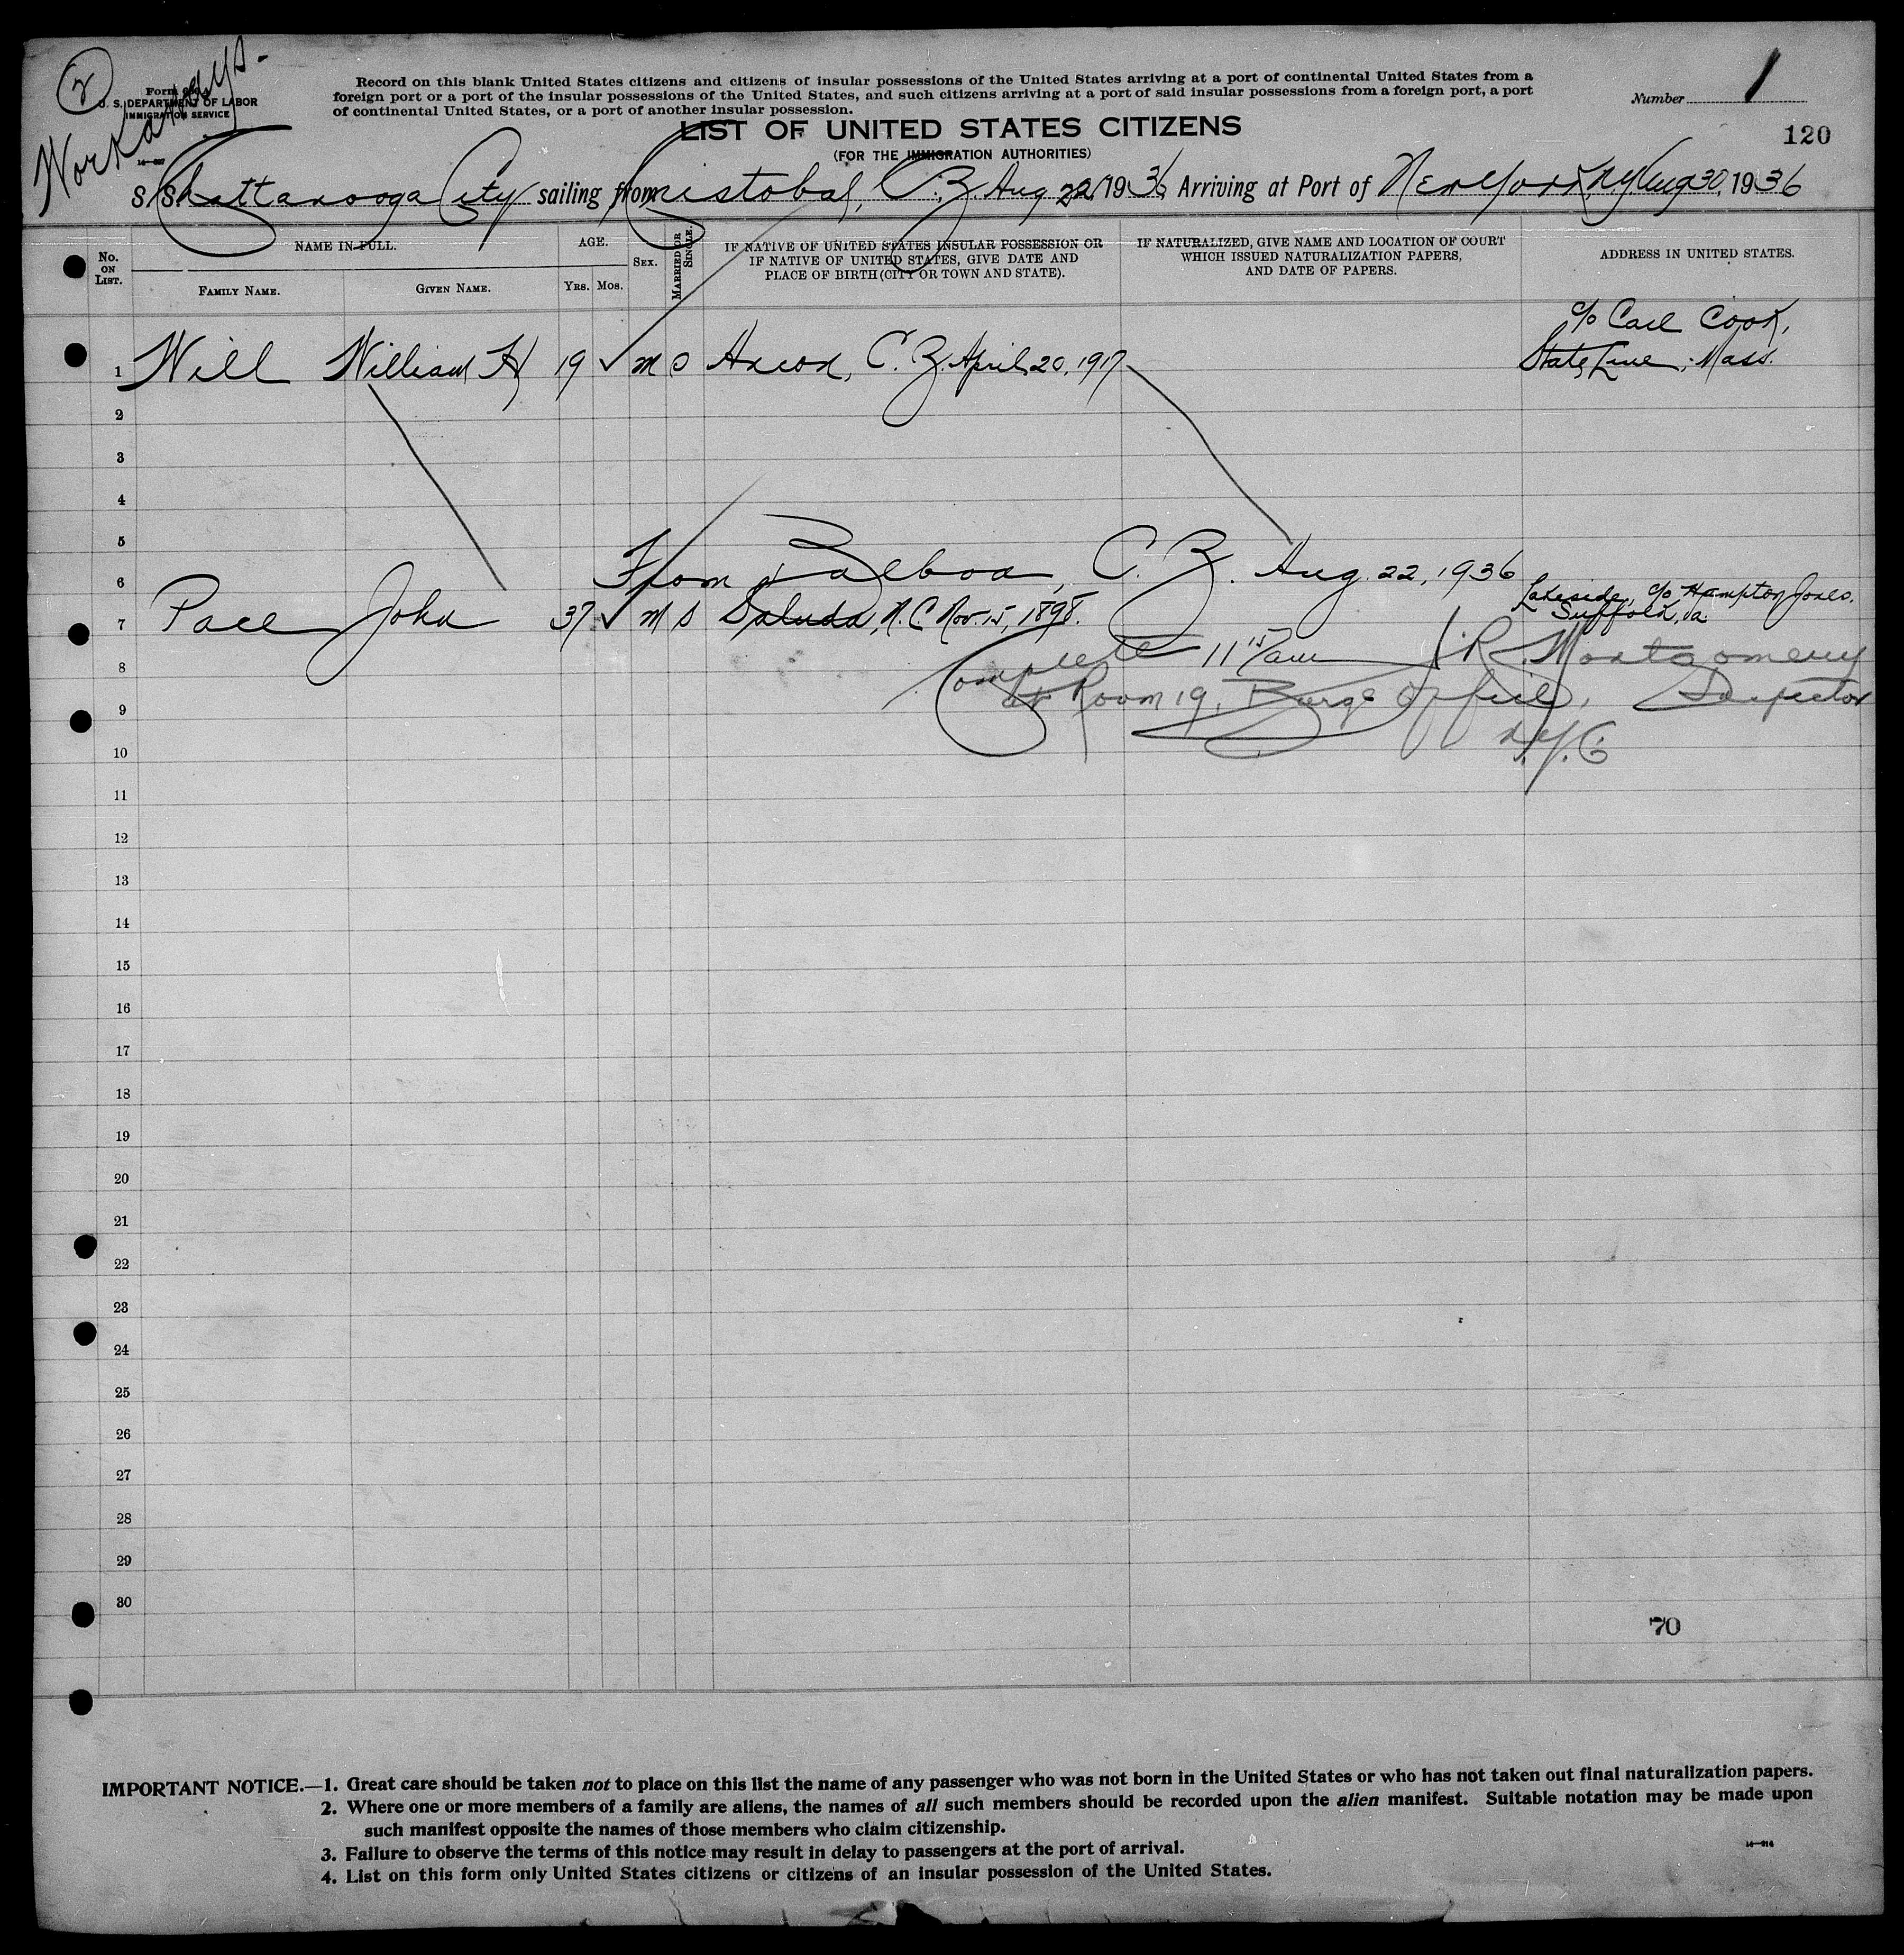 2
Workaways.
Form 630
U. S. DEPARTMENT OF LABOR
IMMIGRATION SERVICE
Record on this blank United States citizens and citizens of insular possessions of the United States arriving at a port of continental United States from a
foreign port or a port of the insular possessions of the United States, and such citizens arriving at a port of said insular possessions from a foreign port, a port
of continental United States, or a port of another insular possession.
Number 1
LIST OF UNITED STATES CITIZENS
120
(FOR THE IMMIGRATION AUTHORITIES)
S.S. Chattanooga City sailing from Cristobal, C.Z. Aug 22, 1936, Arriving at Port of New York, N.Y. Aug 30, 1936
No. ON LIST.
NAME IN FULL.
FAMILY NAME.
GIVEN NAME.
AGE.
YRS. MOS.
SEX.
MARRIED OR SINGLE.
IF NATIVE OF UNITED STATES INSULAR POSSESSION OR
IF NATIVE OF UNITED STATES, GIVE DATE AND
PLACE OF BIRTH (CITY OR TOWN AND STATE).
IF NATURALIZED, GIVE NAME AND LOCATION OF COURT
WHICH ISSUED NATURALIZATION PAPERS,
AND DATE OF PAPERS.
ADDRESS IN UNITED STATES.
c/o Carl Cook,
1 Will William H 19 ✓ m S Ancon, C.Z. April 20, 1917 State Line, Mass.
2
3
4
5
6 From Balboa, C.Z. Aug. 22, 1936
Lakeside, c/o Hampton Jones.
7 Pace John 37 ✓ m S Saluda, N.C. Nov. 15, 1898. Suffolk, Va.
8 Complete 11 15/am J. R. Montgomery
9 at Room 19, Barge Office, Inspector
10 N.Y.C
11
12
13
14
15
16
17
18
19
20
21
22
23
24
25
26
27
28
29
30
70
IMPORTANT NOTICE.—1. Great care should be taken not to place on this list the name of any passenger who was not born in the United States or who has not taken out final naturalization papers.
2. Where one or more members of a family are aliens, the names of all such members should be recorded upon the alien manifest. Suitable notation may be made upon
such manifest opposite the names of those members who claim citizenship.
3. Failure to observe the terms of this notice may result in delay to passengers at the port of arrival.
4. List on this form only United States citizens or citizens of an insular possession of the United States.